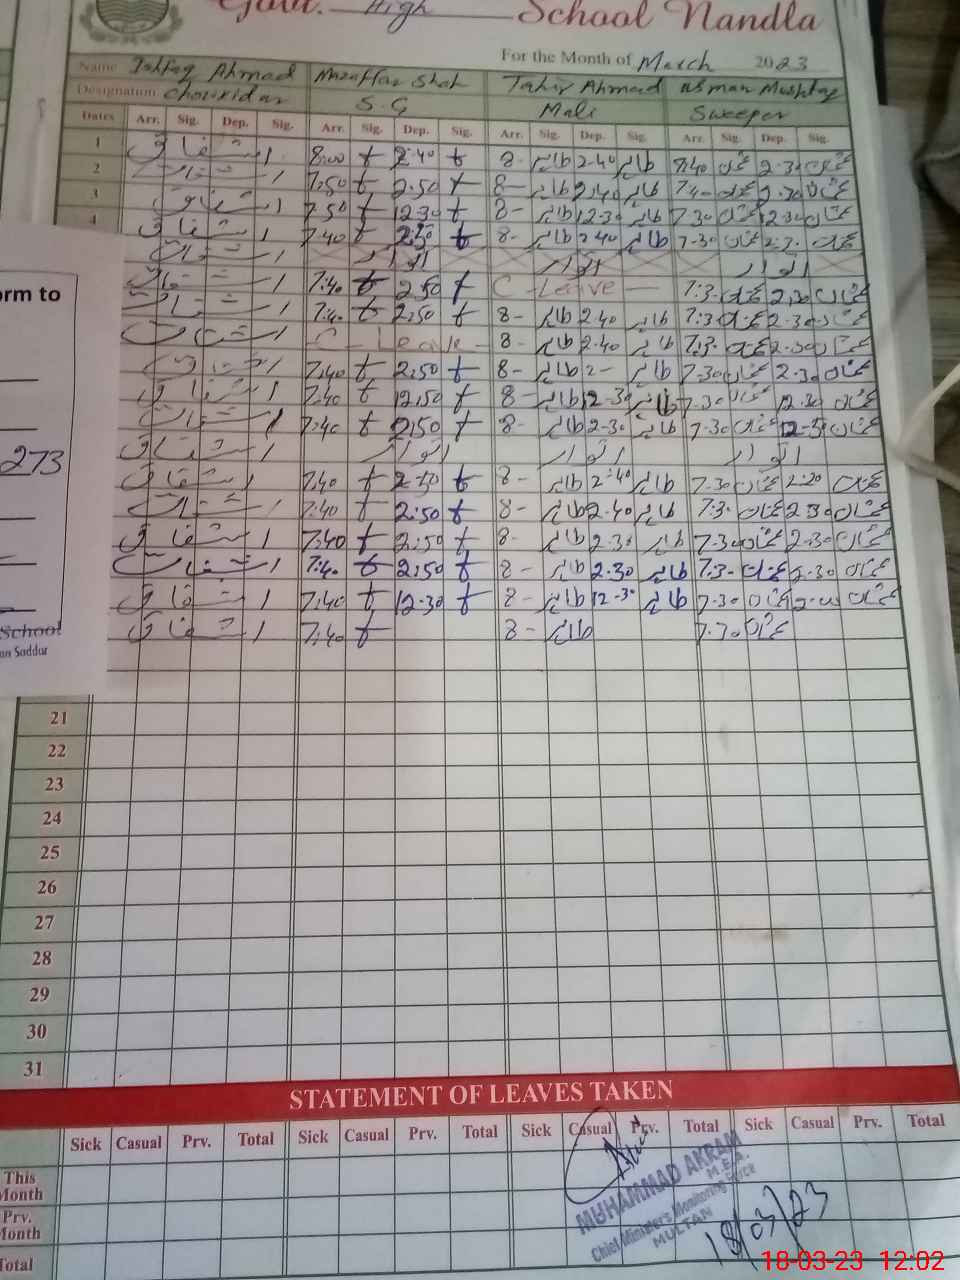 Govt. High School Nandla
For the Month of March 2023
Name Ishfaq Ahmad Mazaffar Shah Tahir Ahmad Usman Mushtaq
Designation Chowkidar S.G Mali Sweeper
Dates Arr. Sig. Dep. Sig. Arr. Sig. Dep. Sig. Arr. Sig. Dep. Sig. Arr. Sig. Dep. Sig.
1 اشفاق 8:00 2:40 8- طاہر 2-40 طاہر 8:40 عثمان 2-30 عثمان
2 اشفاق 7:50 2.50 8- طاہر 2.40 طاہر 7-40 عثمان 2.30 عثمان
3 اشفاق 7:50 12:30 8- طاہر 12-30 طاہر 7-30 عثمان 12-30 عثمان
4 اشفاق 7:40 8- طاہر 2-40 طاہر 7-30 عثمان عثمان
اشفاق اتوار اتوار اتوار
orm to
اشفاق 7:40 2.50 C Leave عثمان عثمان
اشفاق 7:40 2:50 8- طاہر 2-40 طاہر 7:3- عثمان 2-30 عثمان
اشفاق C Leave 8- طاہر 2.40 طاہر 7:3- عثمان 2-30 عثمان
اشفاق 7:40 2.50 8- طاہر 2- طاہر 7-30 عثمان 2-30 عثمان
اشفاق 7:40 12.50 8- طاہر 12-30 طاہر 7-30 عثمان 12.30 عثمان
اشفاق 7:40 2:50 8- طاہر 2-30 طاہر 7-30 عثمان عثمان
273
اشفاق اتوار اتوار اتوار
اشفاق 7:40 2:50 8- طاہر 2-40 طاہر 7-30 عثمان 2:20 عثمان
اشفاق 7:40 2:50 8- طاہر 2.40 طاہر 7:3- عثمان 2.30 عثمان
اشفاق 7:40 2:50 8- طاہر 2.30 طاہر 7-30 عثمان 2-30 عثمان
اشفاق 7:40 2:50 8- طاہر 2.30 طاہر 7:3- عثمان 2.30 عثمان
اشفاق 7:40 12:30 8- طاہر 12-30 طاہر 7-30 عثمان عثمان
اشفاق 7:40 8- طاہر عثمان
School
an Saddar
21
22
23
24
25
26
27
28
29
30
31
STATEMENT OF LEAVES TAKEN
Sick Casual Prv. Total Sick Casual Prv. Total Sick Casual Prv. Total Sick Casual Prv. Total
This Month
Prv. Month
Total
MUHAMMAD AKRAM
M.E.A.
Chief Minister's Monitoring Force
MULTAN
18/03/23
18-03-23 12:02